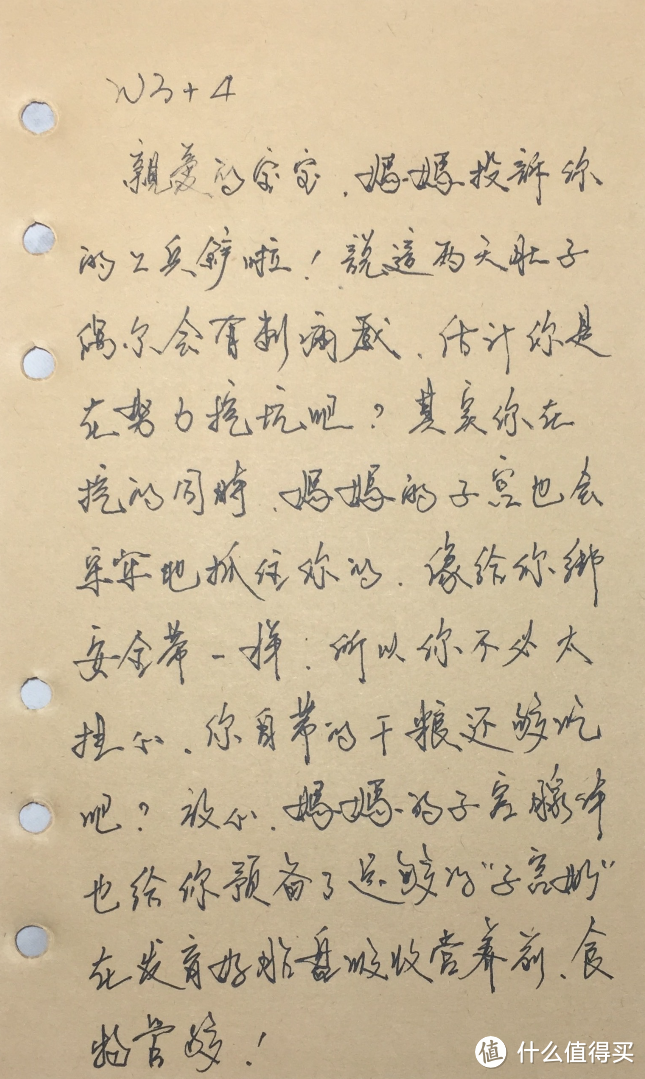 W3+4
親愛的宝宝，媽媽投訴你
的工兵鏟啦！説這两天肚子
偶尔会有刺痛感，估计你是
在努力挖坑吧？其实你在
挖的同時，媽媽的子宫也会
牢牢地抓住你的，像给你綁
安全带一样，所以你不必太
担心，你自带的干粮还够吃
吧？放心，媽媽的子宫腺体
也给你预备了足够的“子宫奶”
在发育好胎盘吸收营养前，食
物管够！
值 什么值得买